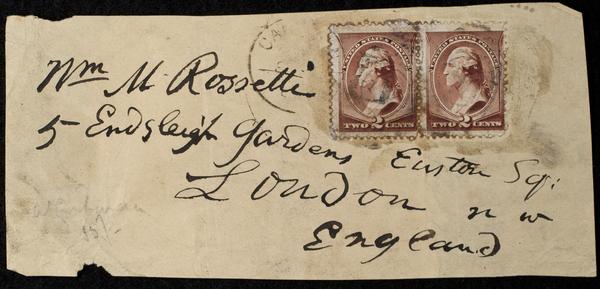 UNITED STATES POSTAGE UNITED STATES POSTAGE
TWO 2 CENTS TWO 2 CENTS
CA
Wm M. Rossetti
5 Endsleigh Gardens Euston Sq:
London n w
England
15/-